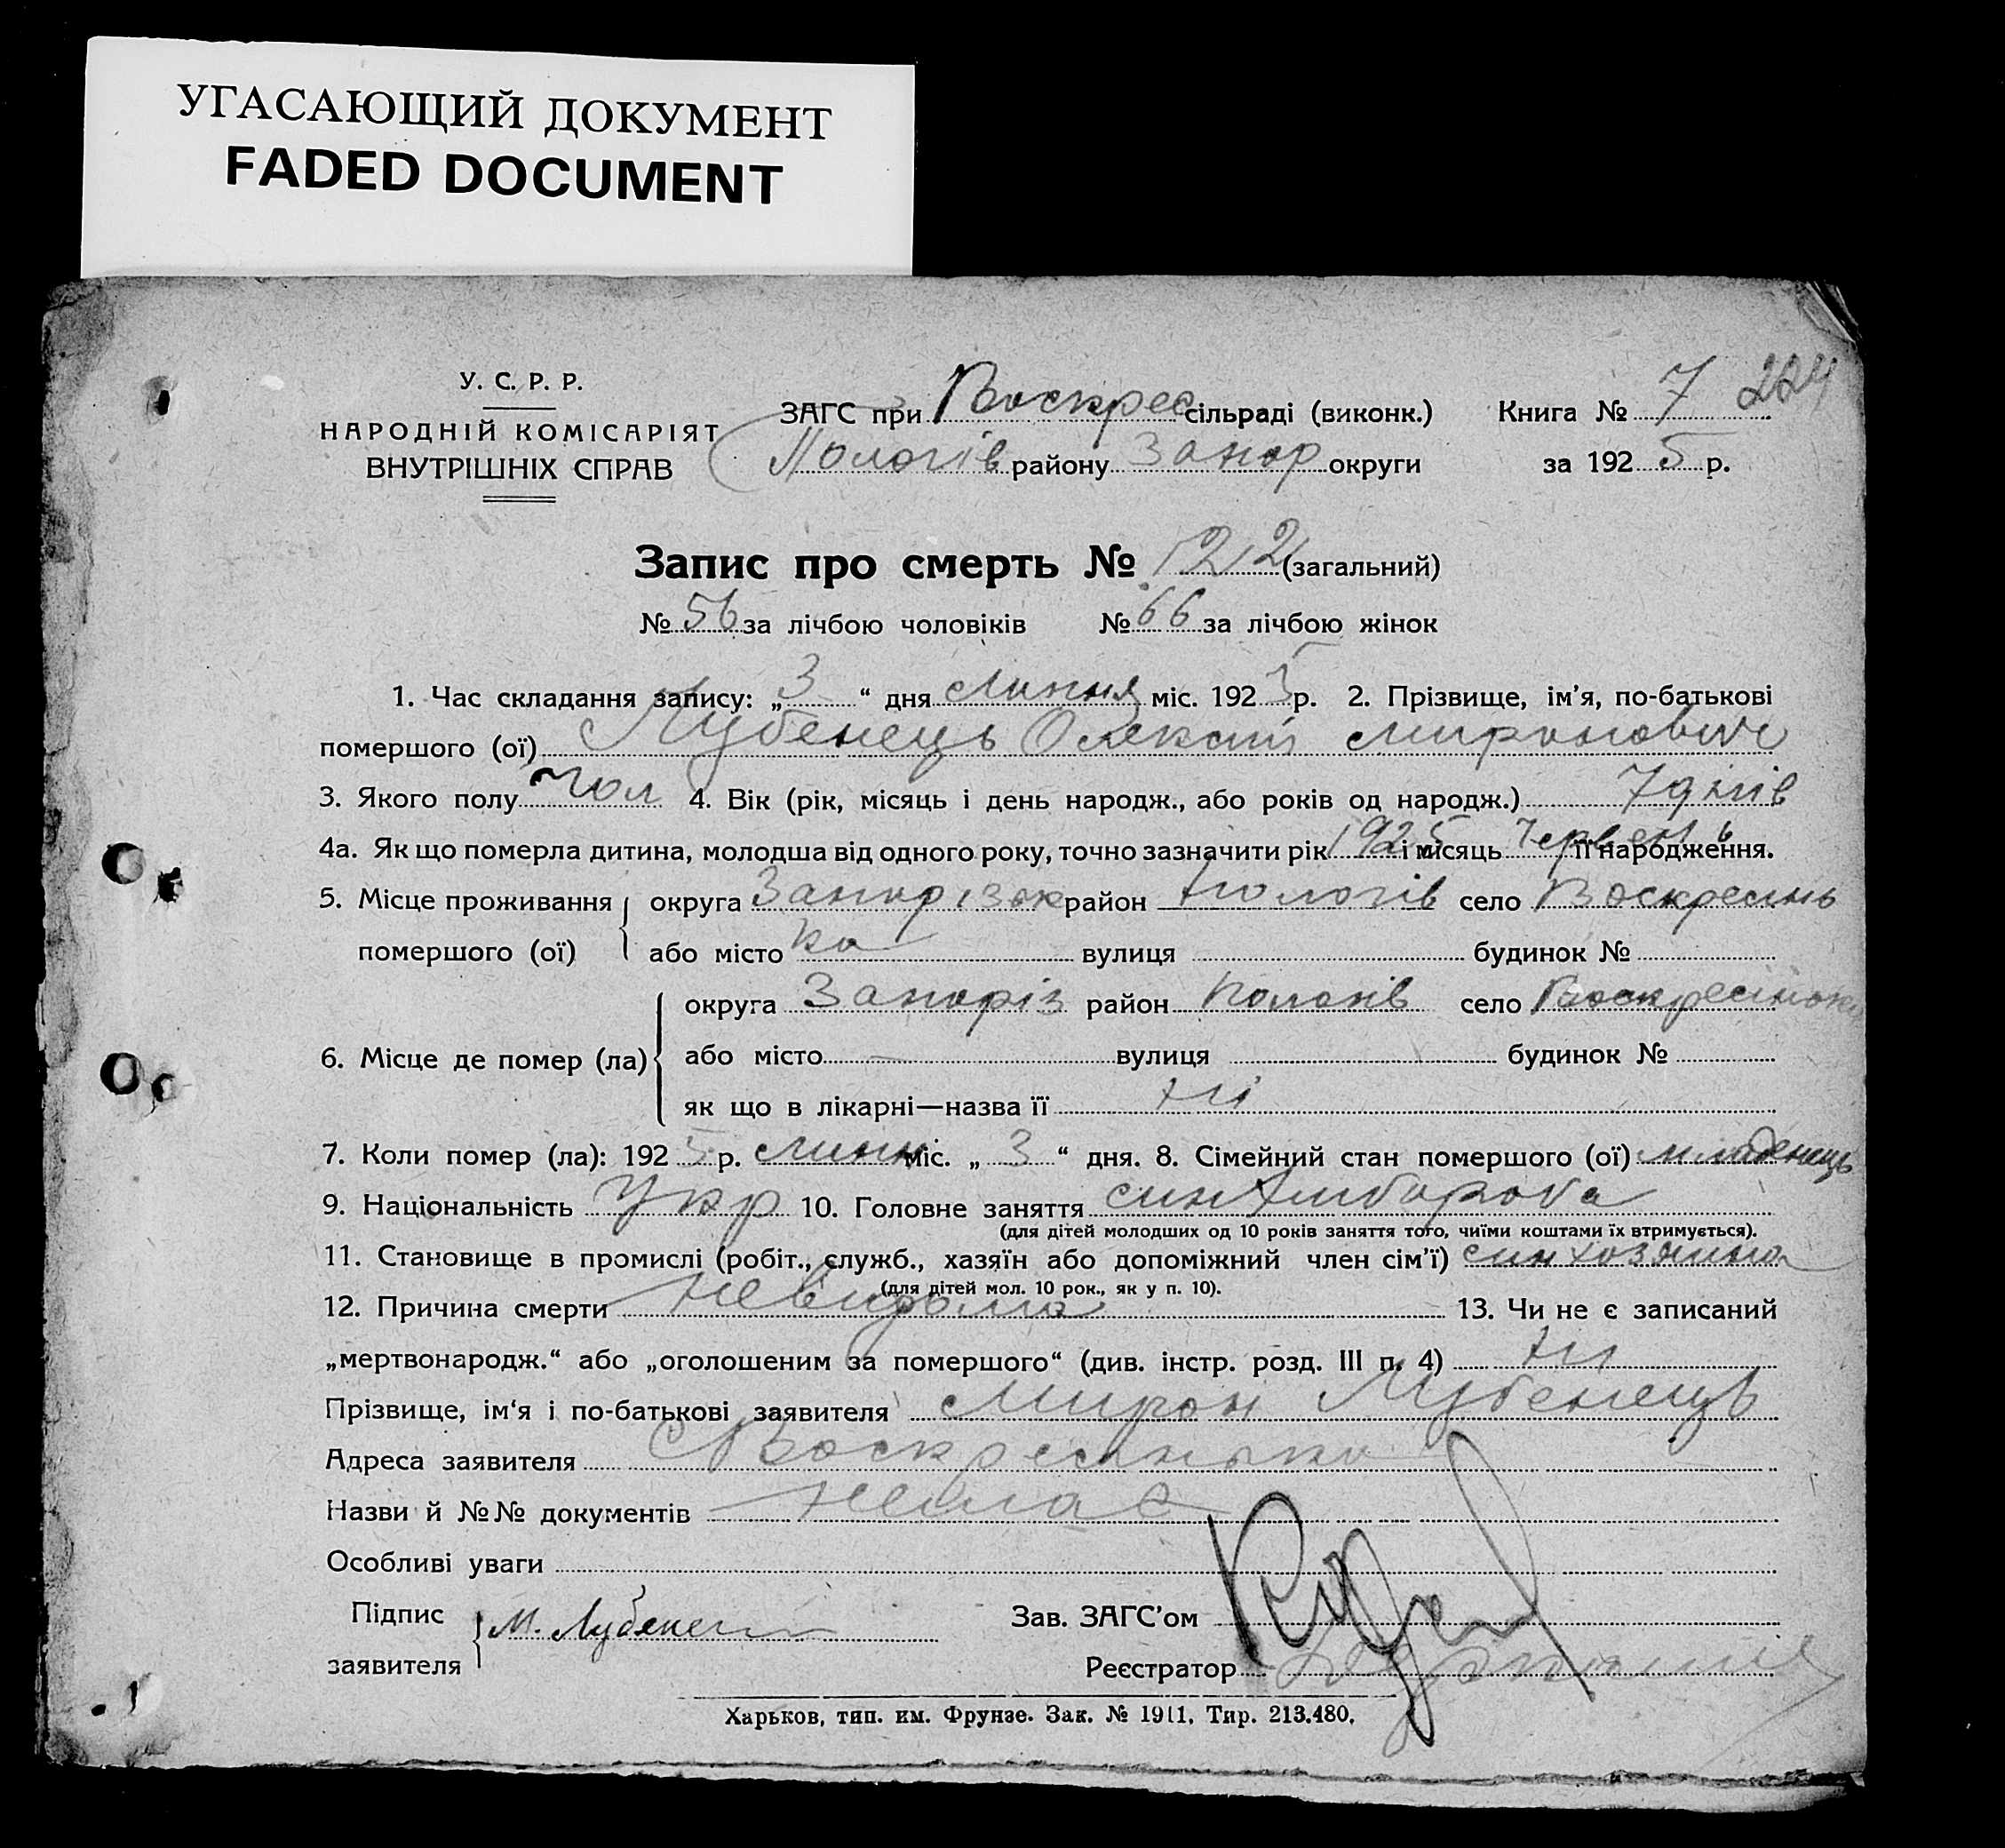 УГАСАЮЩИЙ ДОКУМЕНТ
FADED DOCUMENT
У. С. Р. Р.
НАРОДНІЙ КОМІСАРІЯТ
ВНУТРІШНІХ СПРАВ
ЗАГС при Воскрес сільраді (виконк.)
Пологів району Запор округи
Книга № 7 224
за 1925 р.
Запис про смерть № 122 (загальний)
№ 56 за лічбою чоловіків № 66 за лічбою жінок
1. Час складання запису: „ 3 “ дня липня міс. 1925 р. 2. Прізвище, ім’я, по-батькові
помершого (ої) Лубенець Олексій Миронович
3. Якого полу чол 4. Вік (рік, місяць і день народж., або років од народж.) 7 днів
4а. Як що померла дитина, молодша від одного року, точно зазначити рік 1925 і місяць червень її народження.
5. Місце проживання помершого (ої) округа Запорізьк район Пологів село Воскресинь
або місто ка вулиця будинок №
6. Місце де помер (ла) округа Запоріз район Пологів село Воскресінька
або місто вулиця будинок №
як що в лікарні—назва її ні
7. Коли помер (ла): 1925 р. липн міс. „ 3 “ дня. 8. Сімейний стан помершого (ої) младенець
9. Національність Укр 10. Головне заняття син хлібороба
(для дітей молодших од 10 років заняття того, чиїми коштами їх втримується).
11. Становище в промислі (робіт., служб., хазяїн або допоміжний член сім’ї) син хозяина
(для дітей мол. 10 рок., як у п. 10).
12. Причина смерти невидома 13. Чи не є записаний
„мертвонародж.“ або „оголошеним за помершого“ (див. інстр. розд. III п. 4) ні
Прізвище, ім‘я і по-батькові заявителя Мирон Лубенець
Адреса заявителя с Воскресинька
Назви й №№ документів немає
Особливі уваги
Підпис заявителя М. Лубенец
Зав. ЗАГС’ом
Реєстратор
Харьков, тип. им. Фрунзе. Зак. № 1911, Тир. 213.480.